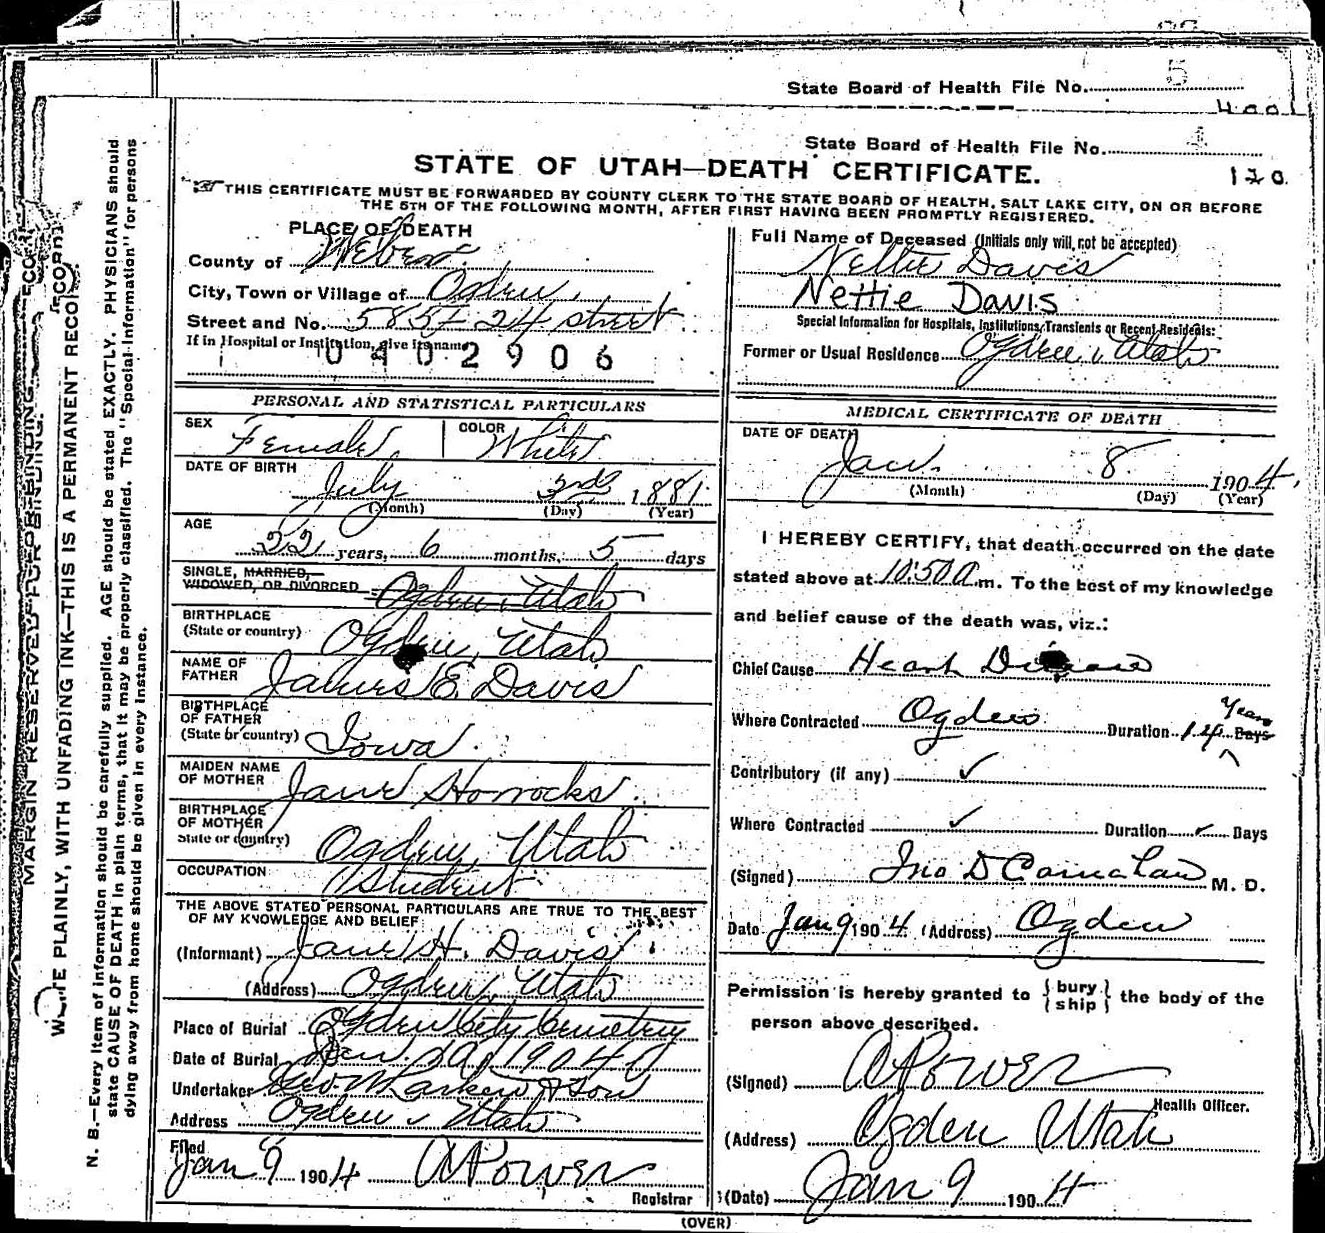 State Board of Health File No. 5
State Board of Health File No. 4
STATE OF UTAH—DEATH CERTIFICATE.
120.
THIS CERTIFICATE MUST BE FORWARDED BY COUNTY CLERK TO THE STATE BOARD OF HEALTH, SALT LAKE CITY, ON OR BEFORE
THE 5TH OF THE FOLLOWING MONTH, AFTER FIRST HAVING BEEN PROMPTLY REGISTERED.
PLACE OF DEATH
County of Weber
City, Town or Village of Ogden,
Street and No. 585 24 street
If in Hospital or Institution, give its name
0402906
PERSONAL AND STATISTICAL PARTICULARS
SEX Female COLOR White
DATE OF BIRTH July 3rd 1881
(Month) (Day) (Year)
AGE
22 years, 6 months, 5 days
SINGLE, MARRIED,
WIDOWED, OR DIVORCED Ogden, Utah
BIRTHPLACE
(State or country) Ogden, Utah
NAME OF
FATHER James E. Davis
BIRTHPLACE
OF FATHER
(State or country) Iowa
MAIDEN NAME
OF MOTHER Jane Horrocks
BIRTHPLACE
OF MOTHER
State or country) Ogden, Utah
OCCUPATION Student
THE ABOVE STATED PERSONAL PARTICULARS ARE TRUE TO THE BEST
OF MY KNOWLEDGE AND BELIEF
(Informant) Jane H. Davis
(Address) Ogden, Utah
Place of Burial Ogden City Cemetery
Date of Burial 1904
Undertaker Geo. W. Larkin & Son
Address Ogden, Utah
Filed
Jan 9 1904 A Power
Registrar
Full Name of Deceased (Initials only will not be accepted)
Nettie Davis
Nettie Davis
Special Information for Hospitals, Institutions, Transients or Recent Residents:
Former or Usual Residence Ogden, Utah
MEDICAL CERTIFICATE OF DEATH
DATE OF DEATH
Jan. 8 1904.
(Month) (Day) (Year)
I HEREBY CERTIFY, that death occurred on the date
stated above at 10:50 a m. To the best of my knowledge
and belief cause of the death was, viz.:
Chief Cause Heart Disease
Where Contracted Ogden Duration 14 Years Days
Contributory (if any) ✓
Where Contracted ✓ Duration ✓ Days
(Signed) Jno D Carnahan M. D.
Date Jan 9 1904 (Address) Ogden
Permission is hereby granted to {bury ship} the body of the
person above described.
(Signed) A Power
Health Officer.
(Address) Ogden Utah
(Date) Jan 9 1904
(OVER)
MARGIN RESERVED FOR BINDING.
WRITE PLAINLY, WITH UNFADING INK—THIS IS A PERMANENT RECORD
N. B.—Every item of information should be carefully supplied. AGE should be stated EXACTLY. PHYSICIANS should
state CAUSE OF DEATH in plain terms, that it may be properly classified. The "Special Information" for persons
dying away from home should be given in every instance.